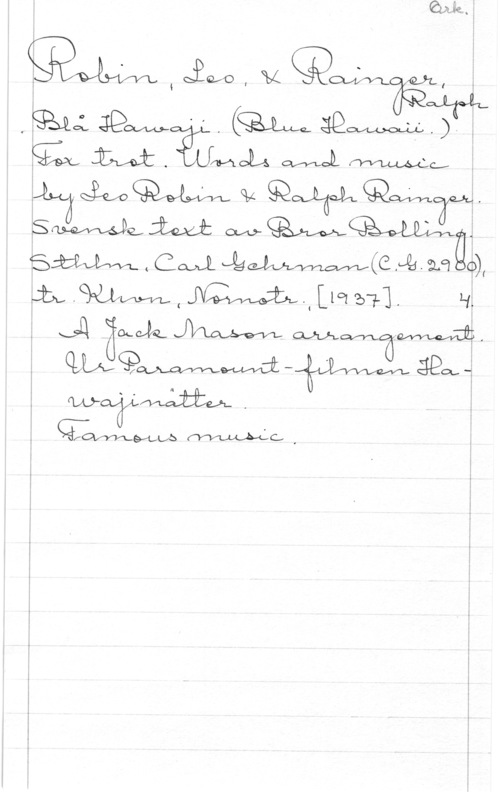 Ork.
Robin, Leo, & Rainger,
Ralph
Blå Hawaji. (Blue Hawaii.)
Fox trot. Words and music
by Leo Robin & Ralph Rainger.
Svensk text av Bror Bolling.
Sthlm, Carl Gehrman (C. G. 2900),
tr. Khvn, Nornotr., [1937]. 4.
A Jack Mason arrangement.
Ur Paramount-filmen Ha-
wajinätter.
Famous music.